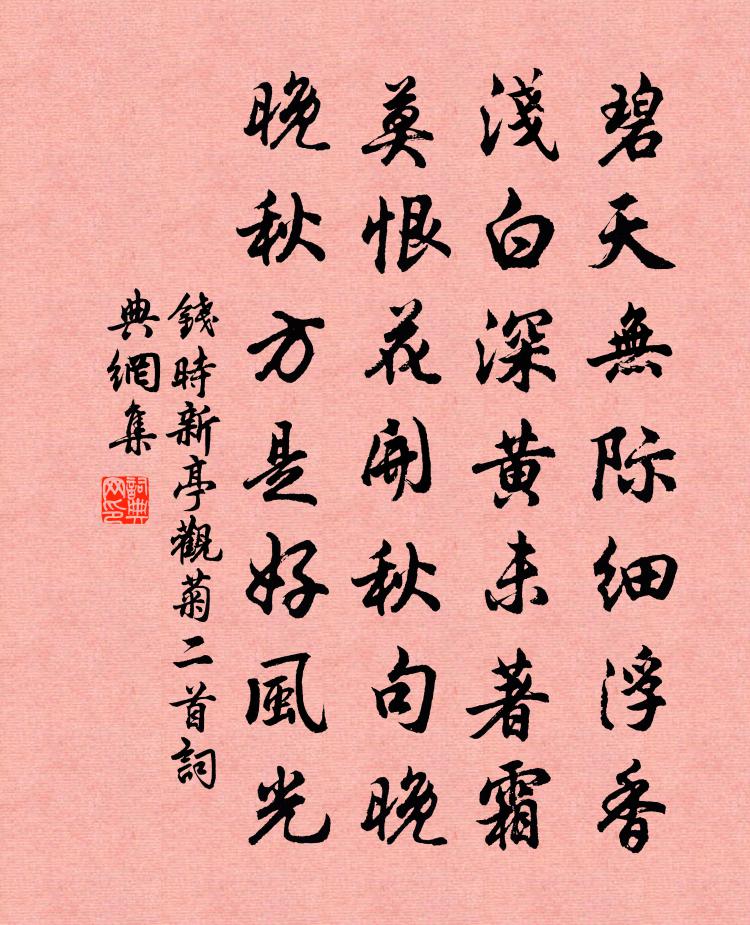 碧天無際细浮香
淺白深黃未著霜
莫恨花開秋句晚
晚秋方是好風光
錢時新亭觀菊二首詞
典網集
詞典
网印